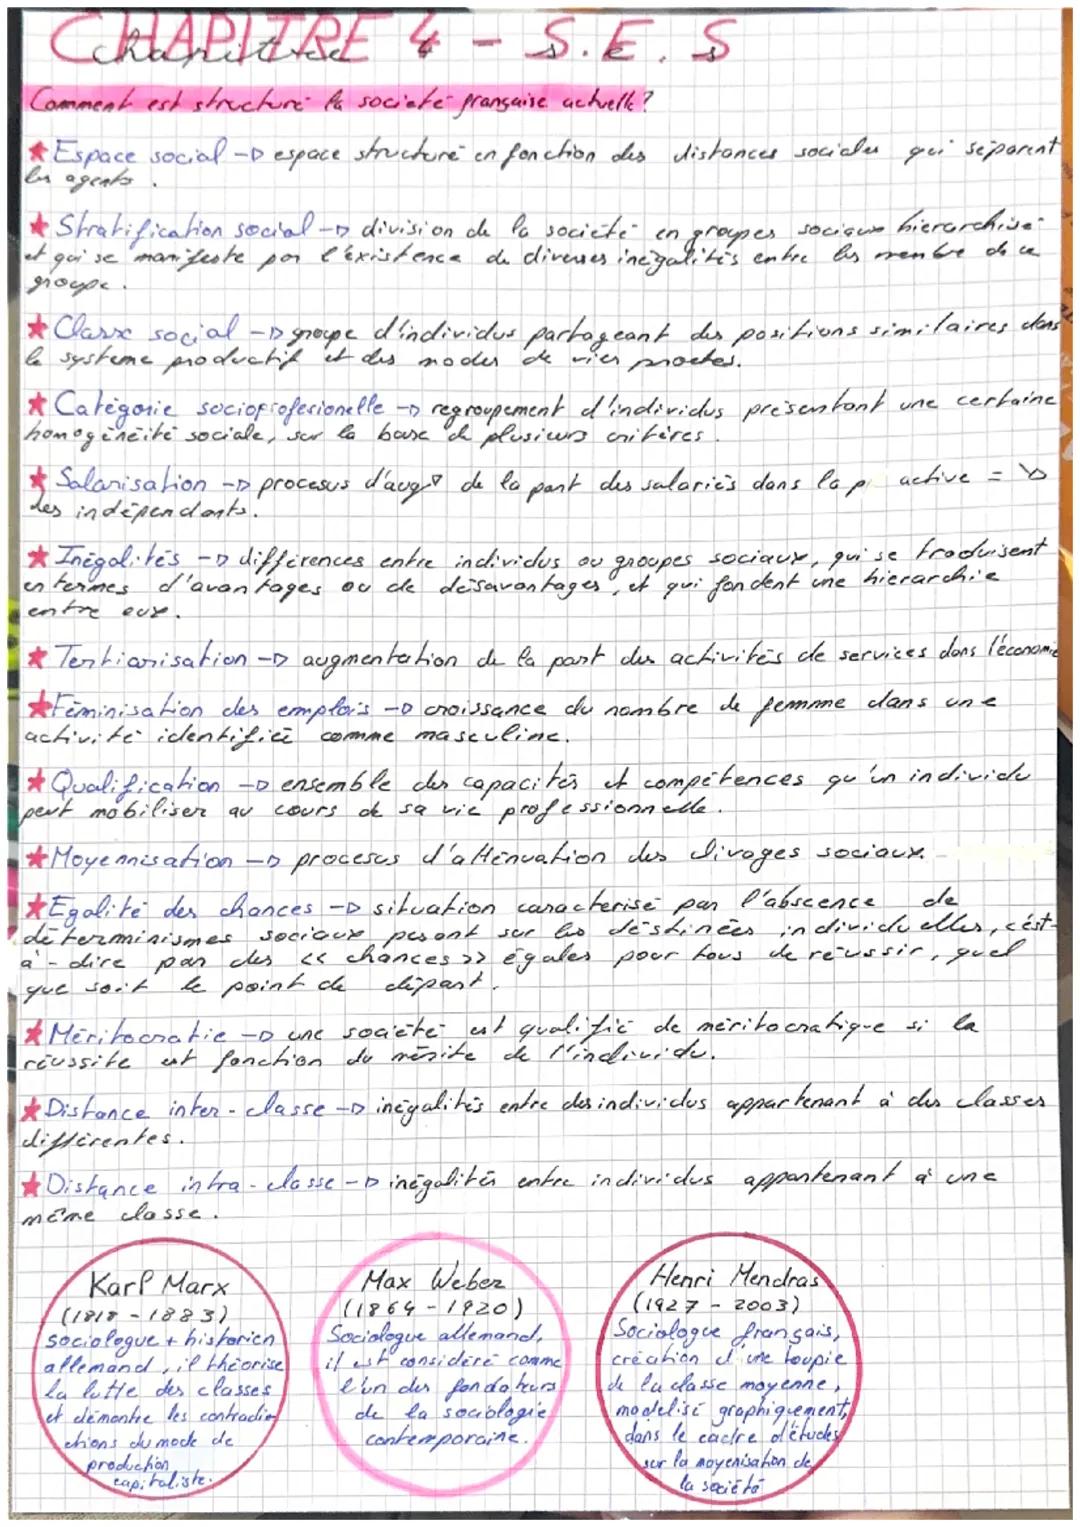 CHAPITRE 4 - S.E.S
Chapitre s.e.s
Comment est structuré la société française actuelle ?
★ Espace social → espace structuré en fonction des distances sociales qui séparent
les agents.
★ Stratification social → division de la société en groupes sociaux hierarchisé
et qui se manifeste par l'existence de diverses inégalités entre les membre de ce
groupe.
★ Classe social → groupe d'individus partageant des positions similaires dans
le systeme productif et des modes de vies proches.
★ Catégorie socioprofesionelle → regroupement d'individus présentant une certaine
homogénéité sociale, sur la base de plusieurs critères.
★ Salarisation → procesus d'aug° de la part des salariés dans la p active = ↘
des indépendants.
★ Inégalités → différences entre individus ou groupes sociaux, qui se traduisent
en termes d'avantages ou de désavantages, et qui fondent une hierarchie
entre eux.
★ Tertiarisation → augmentation de la part des activités de services dans l'économie
★ Féminisation des emplois → croissance du nombre de femme dans une
activité identifiée comme masculine.
★ Qualification → ensemble des capacités et compétences qu'un individu
peut mobiliser au cours de sa vie professionnelle.
★ Moyennisation → procesus d'atténuation des clivages sociaux.
★ Egalité des chances → situation caracterisé par l'abscence de
déterminismes sociaux pesant sur les déstinées individuelles, c'est-
à-dire par des << chances >> égales pour tous de réussir, quel
que soit le point de départ.
★ Méritocratie → une société est qualifié de méritocratique si la
réussite est fonction du mérite de l'individu.
★ Distance inter-classe → inégalités entre des individus appartenant à des classes
différentes.
★ Distance intra-classe → inégalités entre individus appartenant à une
même classe.
Karl Marx
(1818 - 1883)
sociologue + historien
allemand, il théorise
la lutte des classes
et démontre les contradi
ctions du mode de
production
capitaliste.
Max Weber
(1864 - 1920)
Sociologue allemand,
il est considéré comme
l'un des fondateurs
de la sociologie
contemporaine.
Henri Mendras
(1927 - 2003)
Sociologue français,
création d'une toupie
de la classe moyenne,
modélisé graphiquement,
dans le cadre d'études
sur la moyenisation de
la société